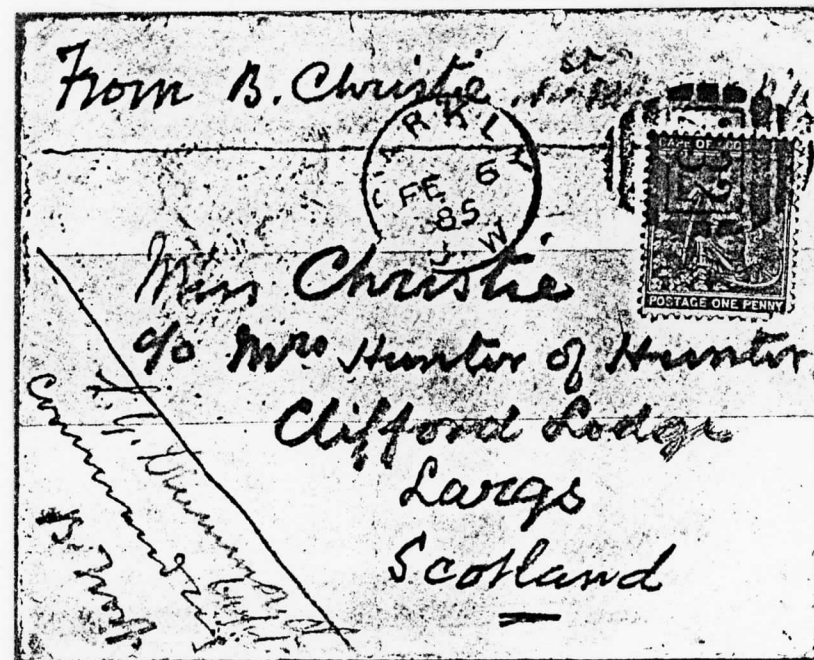 From B. Christie
BARKLY
FE 6
85
W
CAPE OF GOO
POSTAGE ONE PENNY
Miss Christie
c/o Mrs Hunter of Hunter
Clifford Lodge
Largs
Scotland
Commanding